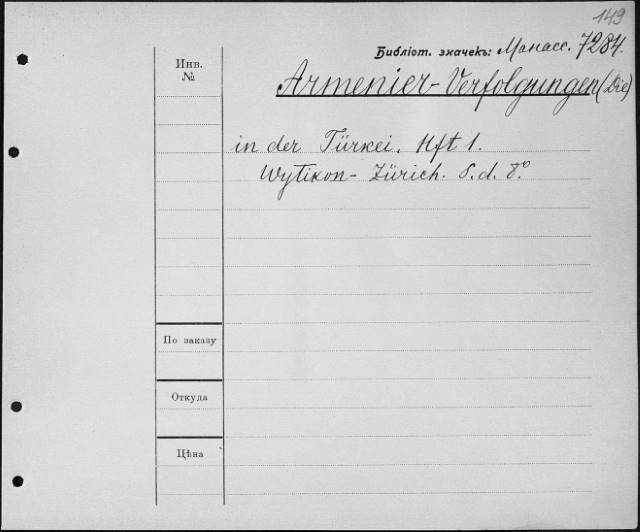 149
Библіот. значекъ: Манасс. 7284.
Инв.
№
Armenier-Verfolgungen (Die)
in der Türkei. Hft 1.
Wytikon- Zürich. S. d. 8º
По заказу
Откуда
Цѣна